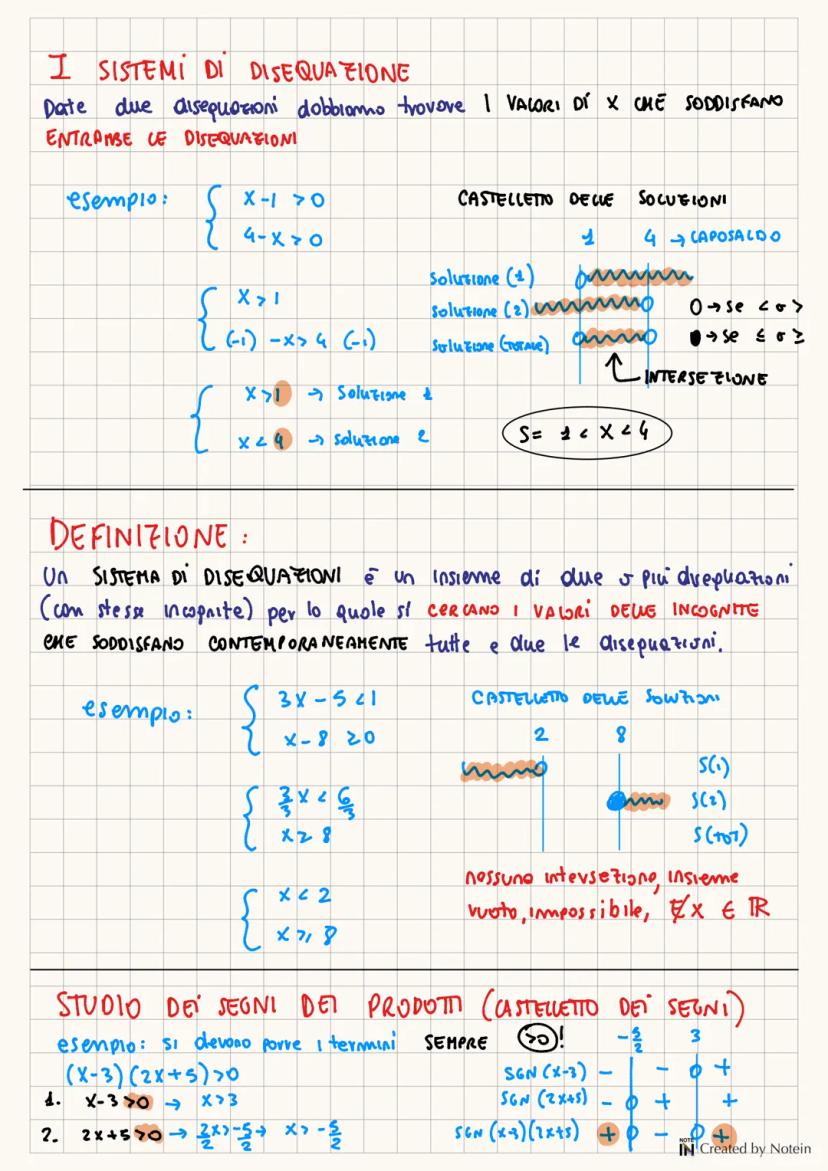 I SISTEMI DI DISEQUAZIONE
Date due disequazioni dobbiamo trovare I VALORI DI X CHE SODDISFANO
ENTRAMBE LE DISEQUAZIONI
esempio:
x-1 >0
4-x>0
x>1
(-1) -x>4 (-1)
x>1 → Soluzione 1
x<4 → Soluzione 2
CASTELLETTO DELLE SOLUZIONI
1 4 → CAPOSALDO
Soluzione (1)
Soluzione (2)
Soluzione (TOTALE)
O → se < o >
● → se ≤ o ≥
INTERSEZIONE
S= 1 < X < 4
DEFINIZIONE:
Un SISTEMA DI DISEQUAZIONI è un insieme di due o più disequazioni
(con stesse incognite) per lo quale si CERCANO I VALORI DELLE INCOGNITE
CHE SODDISFANO CONTEMPORANEAMENTE tutte e due le disequazioni.
esempio:
3x-5<1
x-8 ≥0
3/3 x < 6/3
x≥ 8
x<2
x≥ 8
CASTELLETTO DELLE SOLUZIONI
2 8
S(1)
S(2)
S(TOT)
nessuna intersezione, insieme
vuoto, impossibile, ∄x ∈ ℝ
STUDIO DEI SEGNI DEI PRODOTTI (CASTELLETTO DEI SEGNI)
esempio: si devono porre i termini SEMPRE >0!
(x-3)(2x+5)>0
1. x-3>0 → x>3
2. 2x+5>0 → 2/2x>-5/2 → x>-5/2
-5/2 3
SGN (x-3) - - o +
SGN (2x+5) - o + +
SGN (x-3)(2x+5) + o - o +
NOTE IN Created by Notein